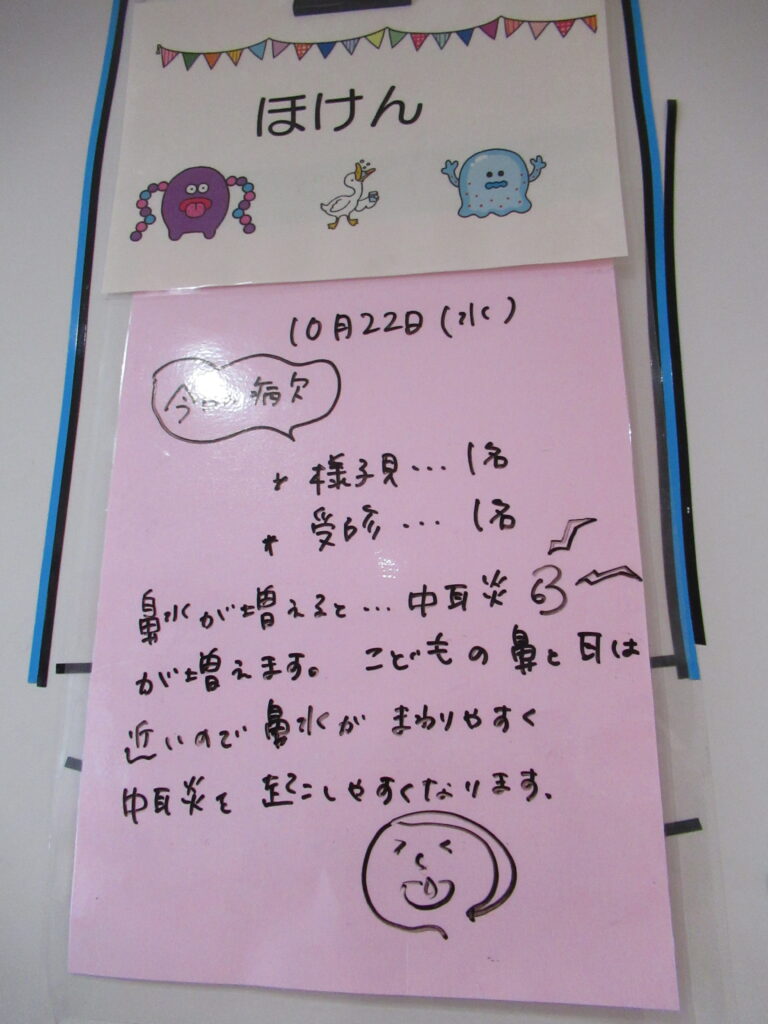 ほけん
10月22日(水)
今日の病欠
* 様子見... 1名
* 受診... 1名
鼻水が増えると... 中耳炎
が増えます。こどもの鼻と耳は
近いので鼻水が まわりやすく
中耳炎を 起こしやすくなります。